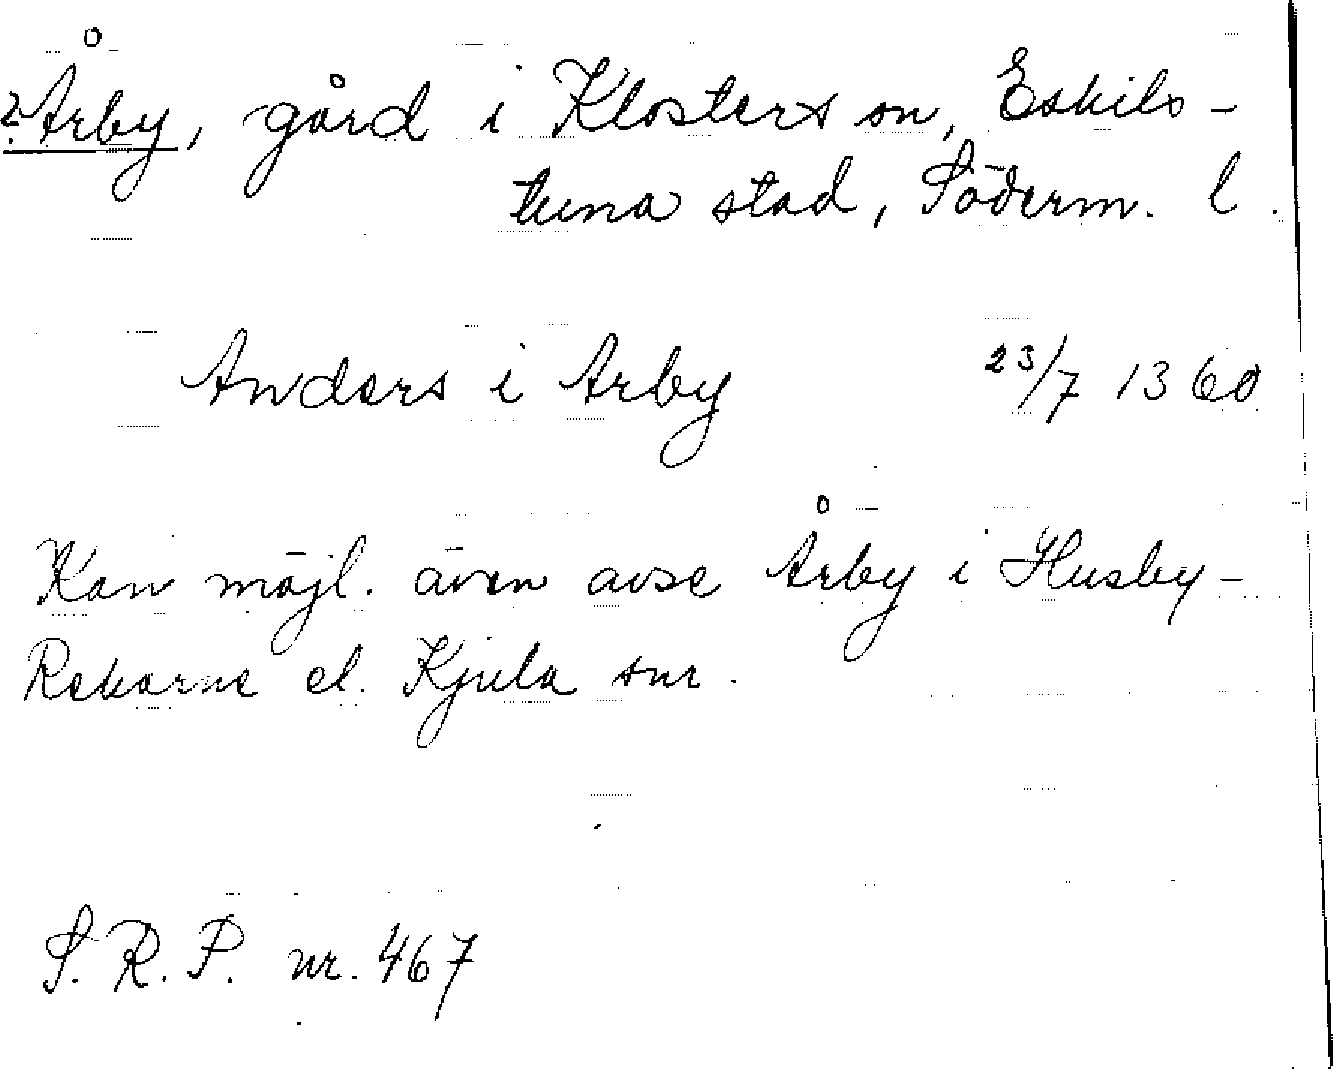 ?Årby, gård i Klosters sn, Eskils-
tuna stad, Söderm. l.
Anders i Arby 23/7 1360
Kan möjl. även avse Årby i Husby-
Rekarne el. Kjula snr.
S.R.P. nr. 467